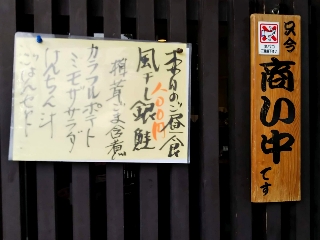 本日のご昼食
一〇〇〇円
風干し銀鮭
椎茸ごま含煮
カラフルポテト
ミモザサラダ
けんちん汁
ごはんセット
只今
商い中
です